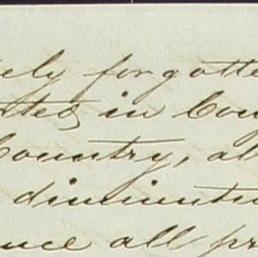 ely forgotte
sted in Con
Country, al
diminuti
nce all pr